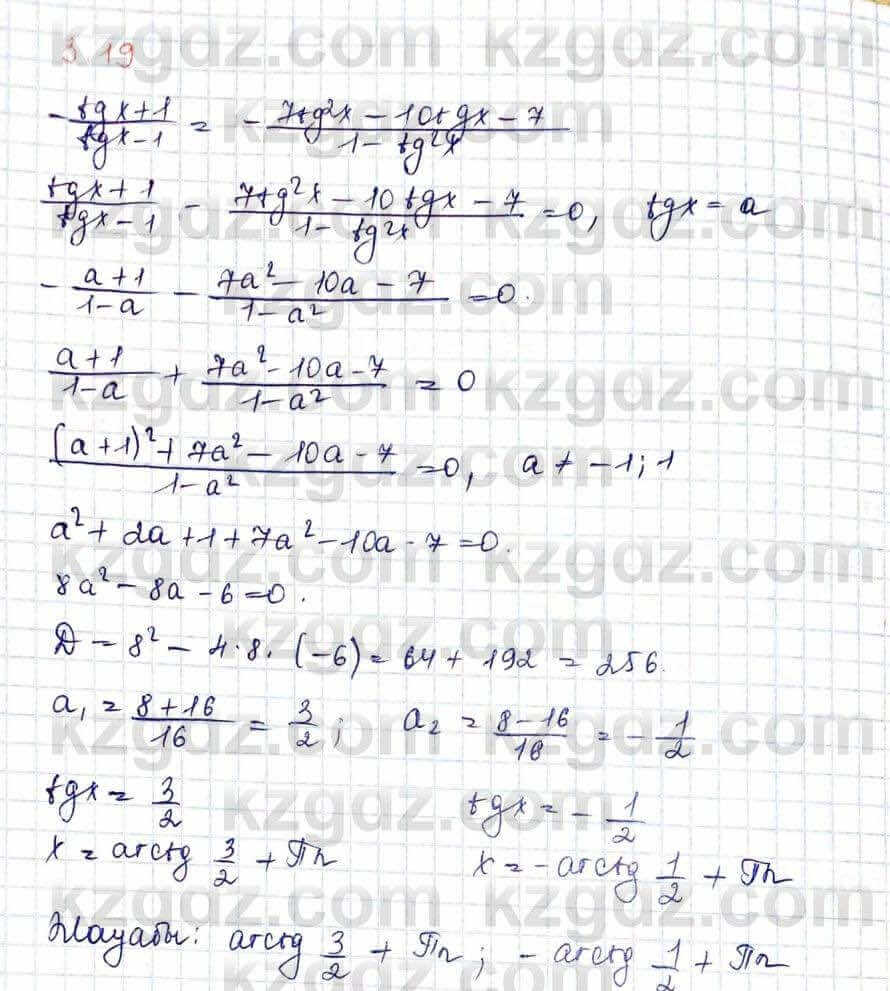 3.19
-(tgx+1)/(tgx-1) = -(7tg²x - 10tgx - 7)/(1 - tg²x)
(tgx+1)/(tgx-1) - (7tg²x - 10tgx - 7)/(1 - tg²x) = 0, tgx = a
-(a+1)/(1-a) - (7a² - 10a - 7)/(1-a²) = 0.
(a+1)/(1-a) + (7a² - 10a - 7)/(1-a²) = 0
((a+1)² + 7a² - 10a - 7)/(1-a²) = 0, a ≠ -1; 1
a² + 2a + 1 + 7a² - 10a - 7 = 0.
8a² - 8a - 6 = 0.
D = 8² - 4·8·(-6) = 64 + 192 = 256.
a₁ = (8+16)/16 = 3/2; a₂ = (8-16)/16 = -1/2
tgx = 3/2 tgx = -1/2
x = arctg 3/2 + Пn x = -arctg 1/2 + Пn
Жауабы: arctg 3/2 + Пn; -arctg 1/2 + Пn
kzgdz.com